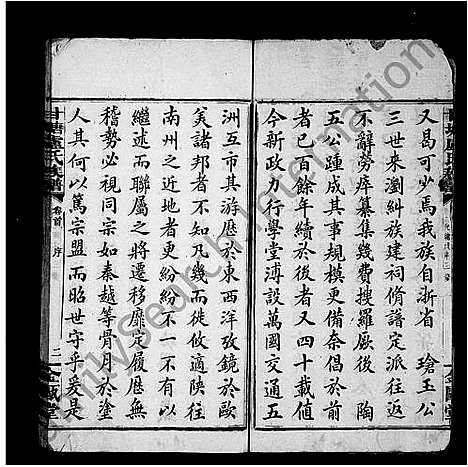 又曷可少焉我族自浙省　瓊玉公
三世來瀏糾族建祠脩譜定派往返
不辭勞瘁纂集幾費搜羅厥後　陶
五公踵成其事規模更備奈倡印板
者已百餘年續於後者又四十載值
今新政力行學堂溥設萬國交通五
洲互市其游歷於東西洋攷鏡於歐
美諸邦者不知凡幾而徙攸適陝往
南州之近地者更紛紛不一不有以
繼述而聯屬之將遷移靡定履歷無
稽勢必視同宗如秦越等骨月於塗
人其何以篤宗盟而昭世守乎爰是
甘塘盧氏族譜
卷首
序
二